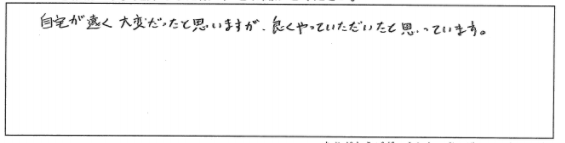 自宅が遠く大変だったと思いますが、良くやっていただいたと思っています。